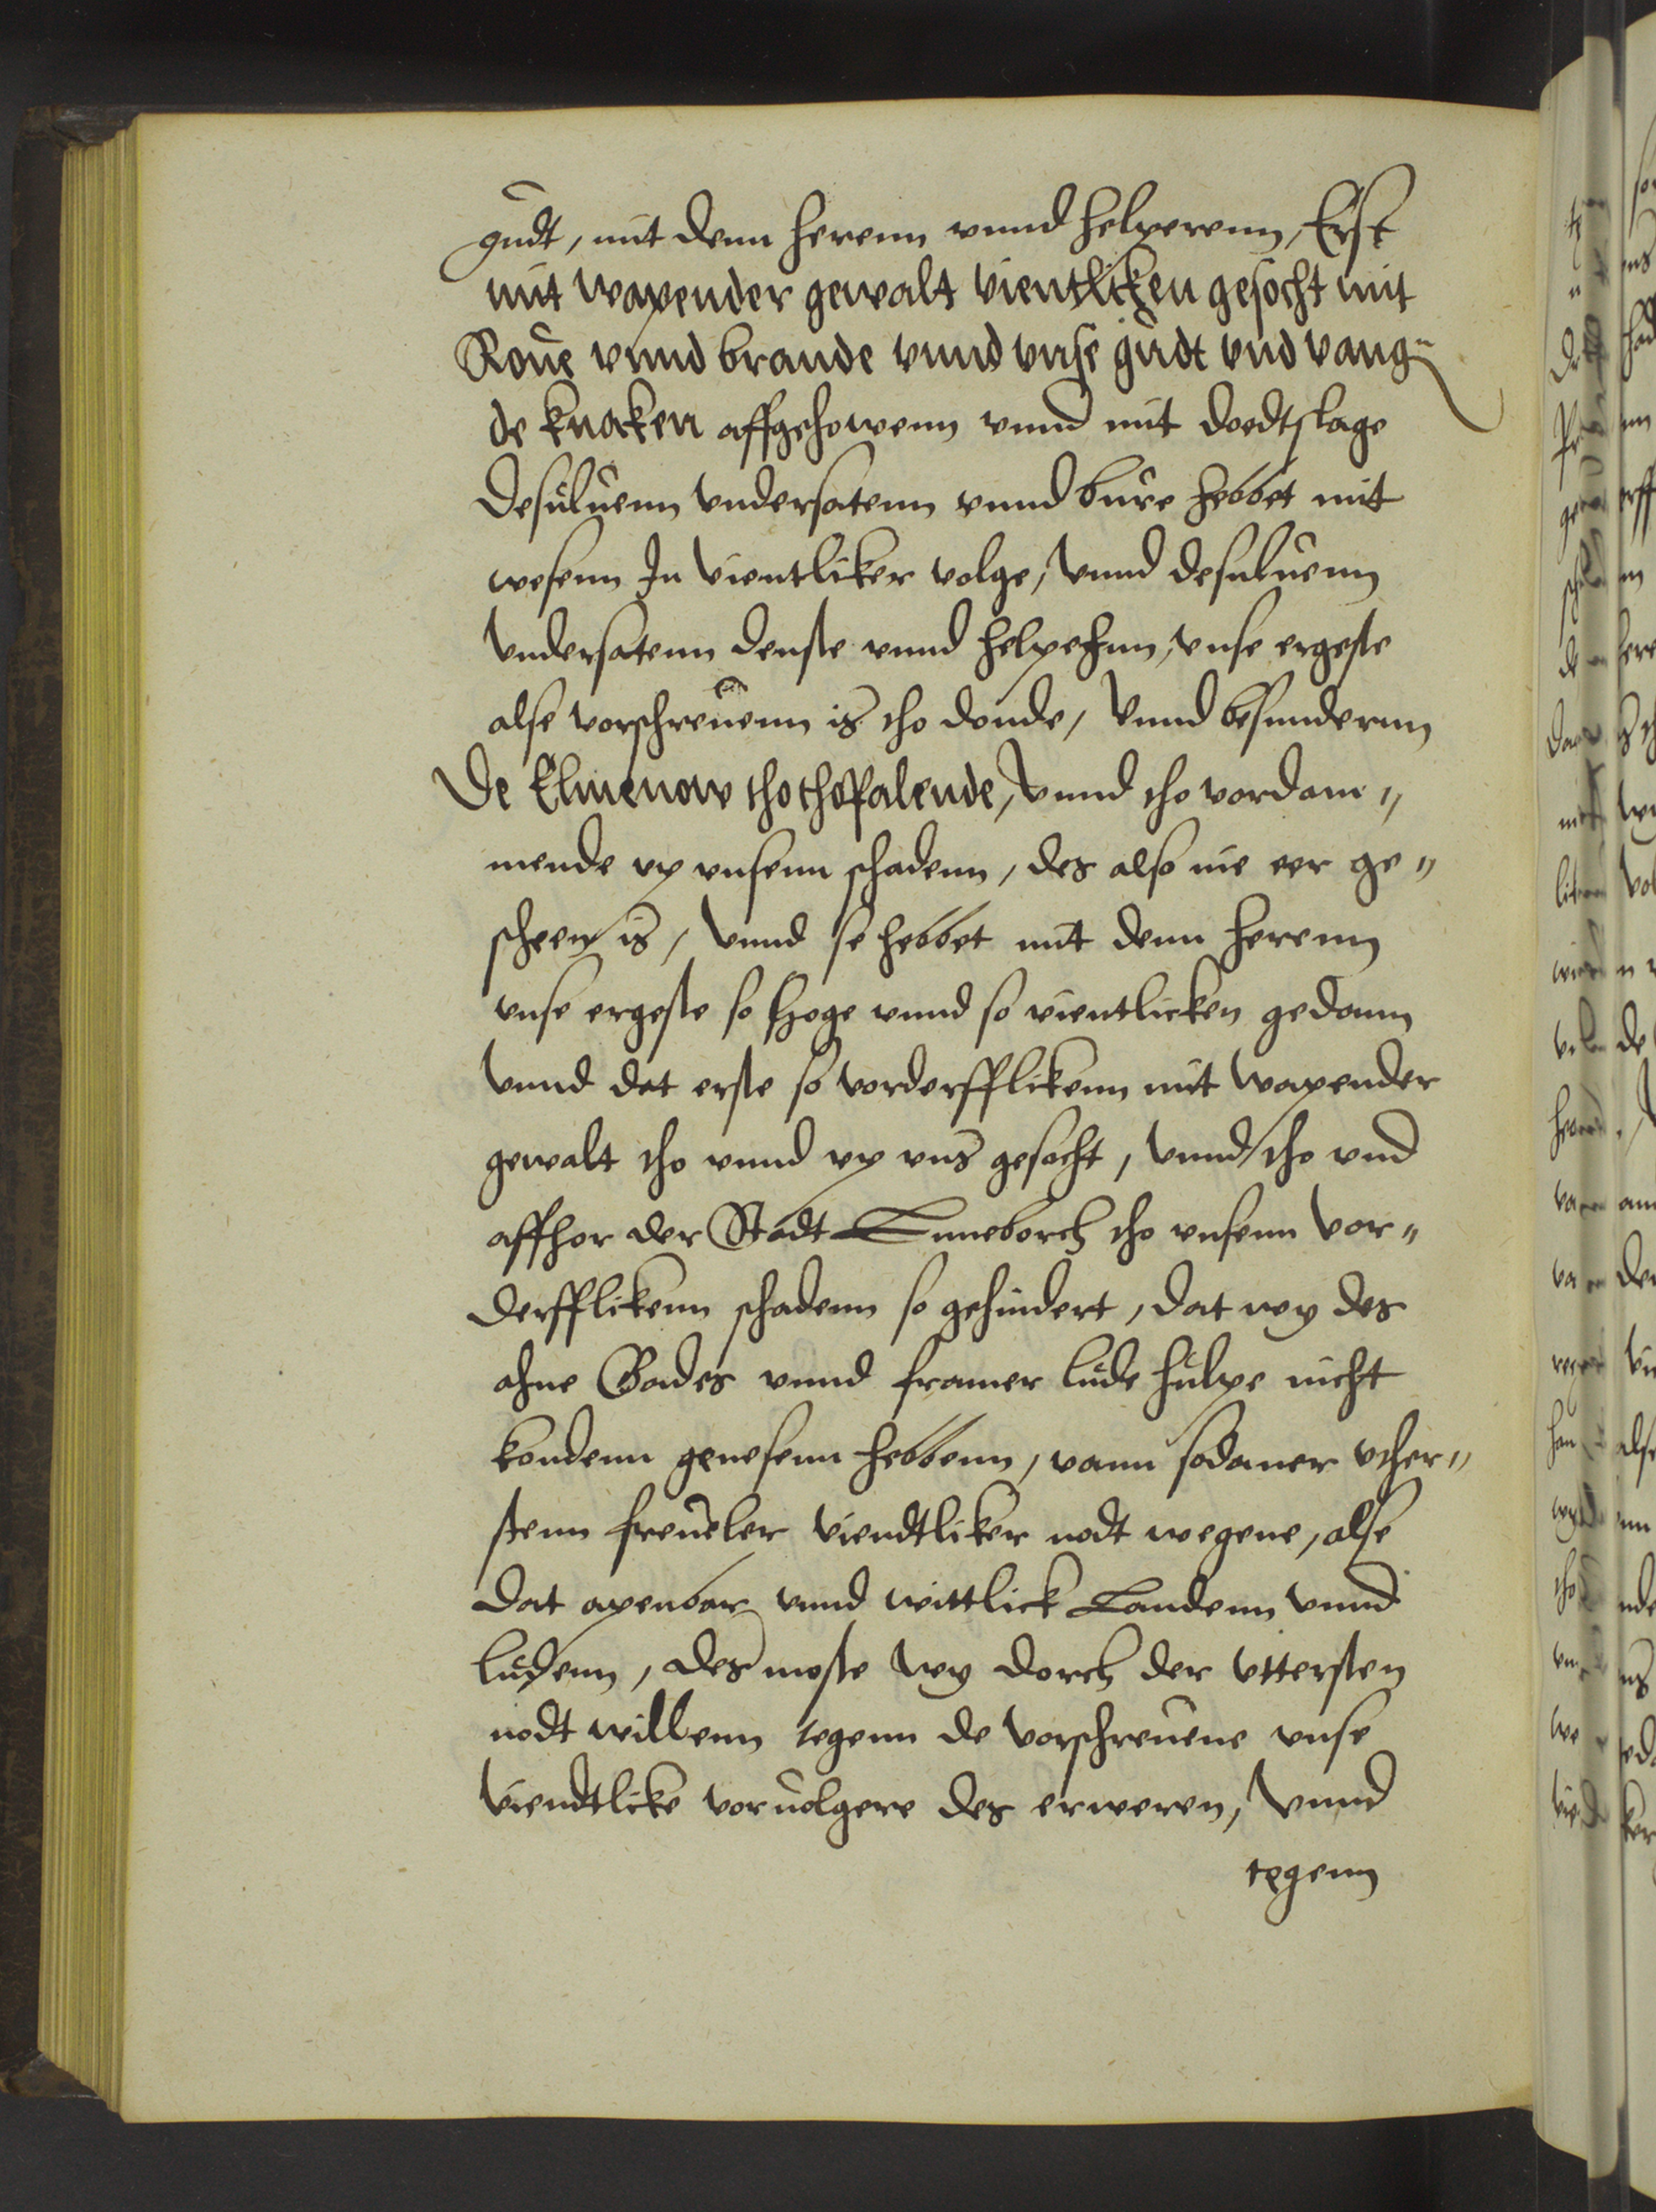 gudt, mit denn herenn vnnd helperenn, Erst
mit wapender gewalt vientlicken gesocht mit
Roue vnnd brande vnnd vnse gudt vnd vang"
de knaken affgehowenn vnnd mit doedtslage
desuluenn vndersatenn vnnd bure hebbet mit
wesenn In vientliker volge, vnnd desuluenn
vndersatenn denste vnnd helpe hnn, vnse ergeste
alse vorschreuenn is tho donde, vnnd besundernn
De Elmenow tho thopalende, vnnd tho vordam"
mende vp vnsenn schadenn, des also nie eer ge"
scheen is, vnnd se hebbet mit denn herenn
vnse ergeste so hoge vnnd so vientlicken gedann
vnnd dat erste so vorderfflikenn mit wapender
gewalt tho vnnd vp vns gesocht, vnnd tho vnd
affhor der Stadt Luneborch tho vnsenn vor"
derfflikenn schadenn so gehindert, dat wy des
ahne Gades vnnd framer lude hulpe nicht
kondenn genesenn hebbenn, vann sodaner vther"
stenn freueler viendtliker nodt wegene, alse
dat apenbar vnnd wittlick Landenn vnnd
ludenn, des moste wy dorch der vttersten
nodt willenn tegenn de vorschreuene vnse
viendtlike voruolgere des erweren, vnnd
tegenn